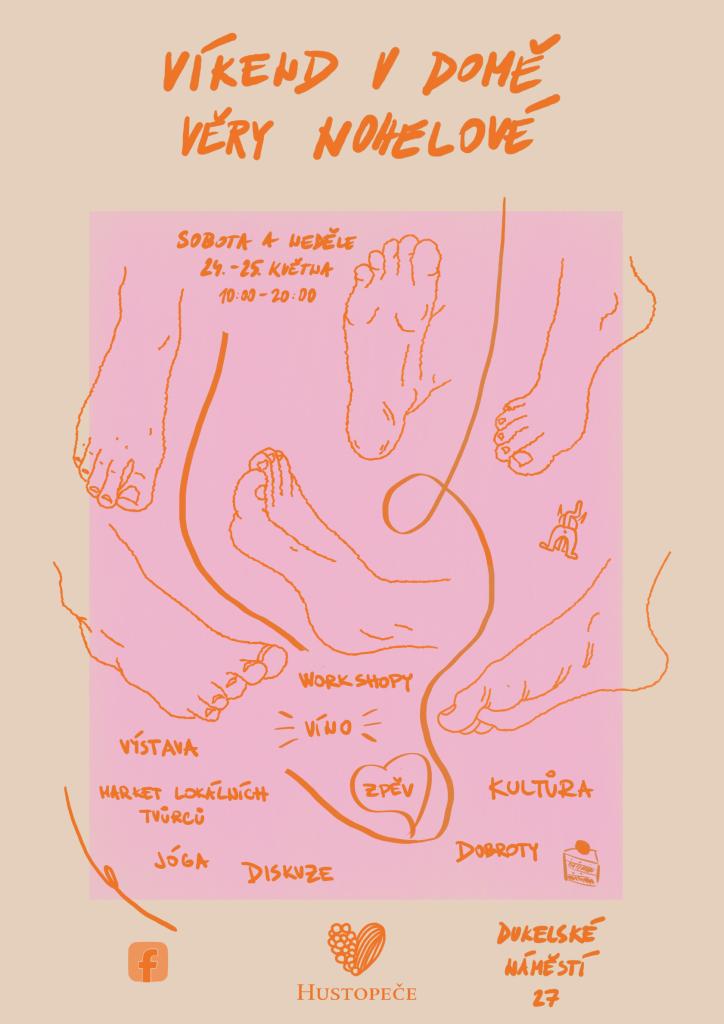 VÍKEND V DOMĚ
VĚRY NOHELOVÉ
SOBOTA A NEDĚLE
24.-25. KVĚTNA
10:00-20:00
WORKSHOPY
VÍNO
VÝSTAVA
ZPĚV
KULTŮRA
MARKET LOKÁLNÍCH
TVŮRCŮ
JÓGA
DISKUZE
DOBROTY
f
HUSTOPEČE
DUKELSKÉ
NÁMĚSTÍ
27